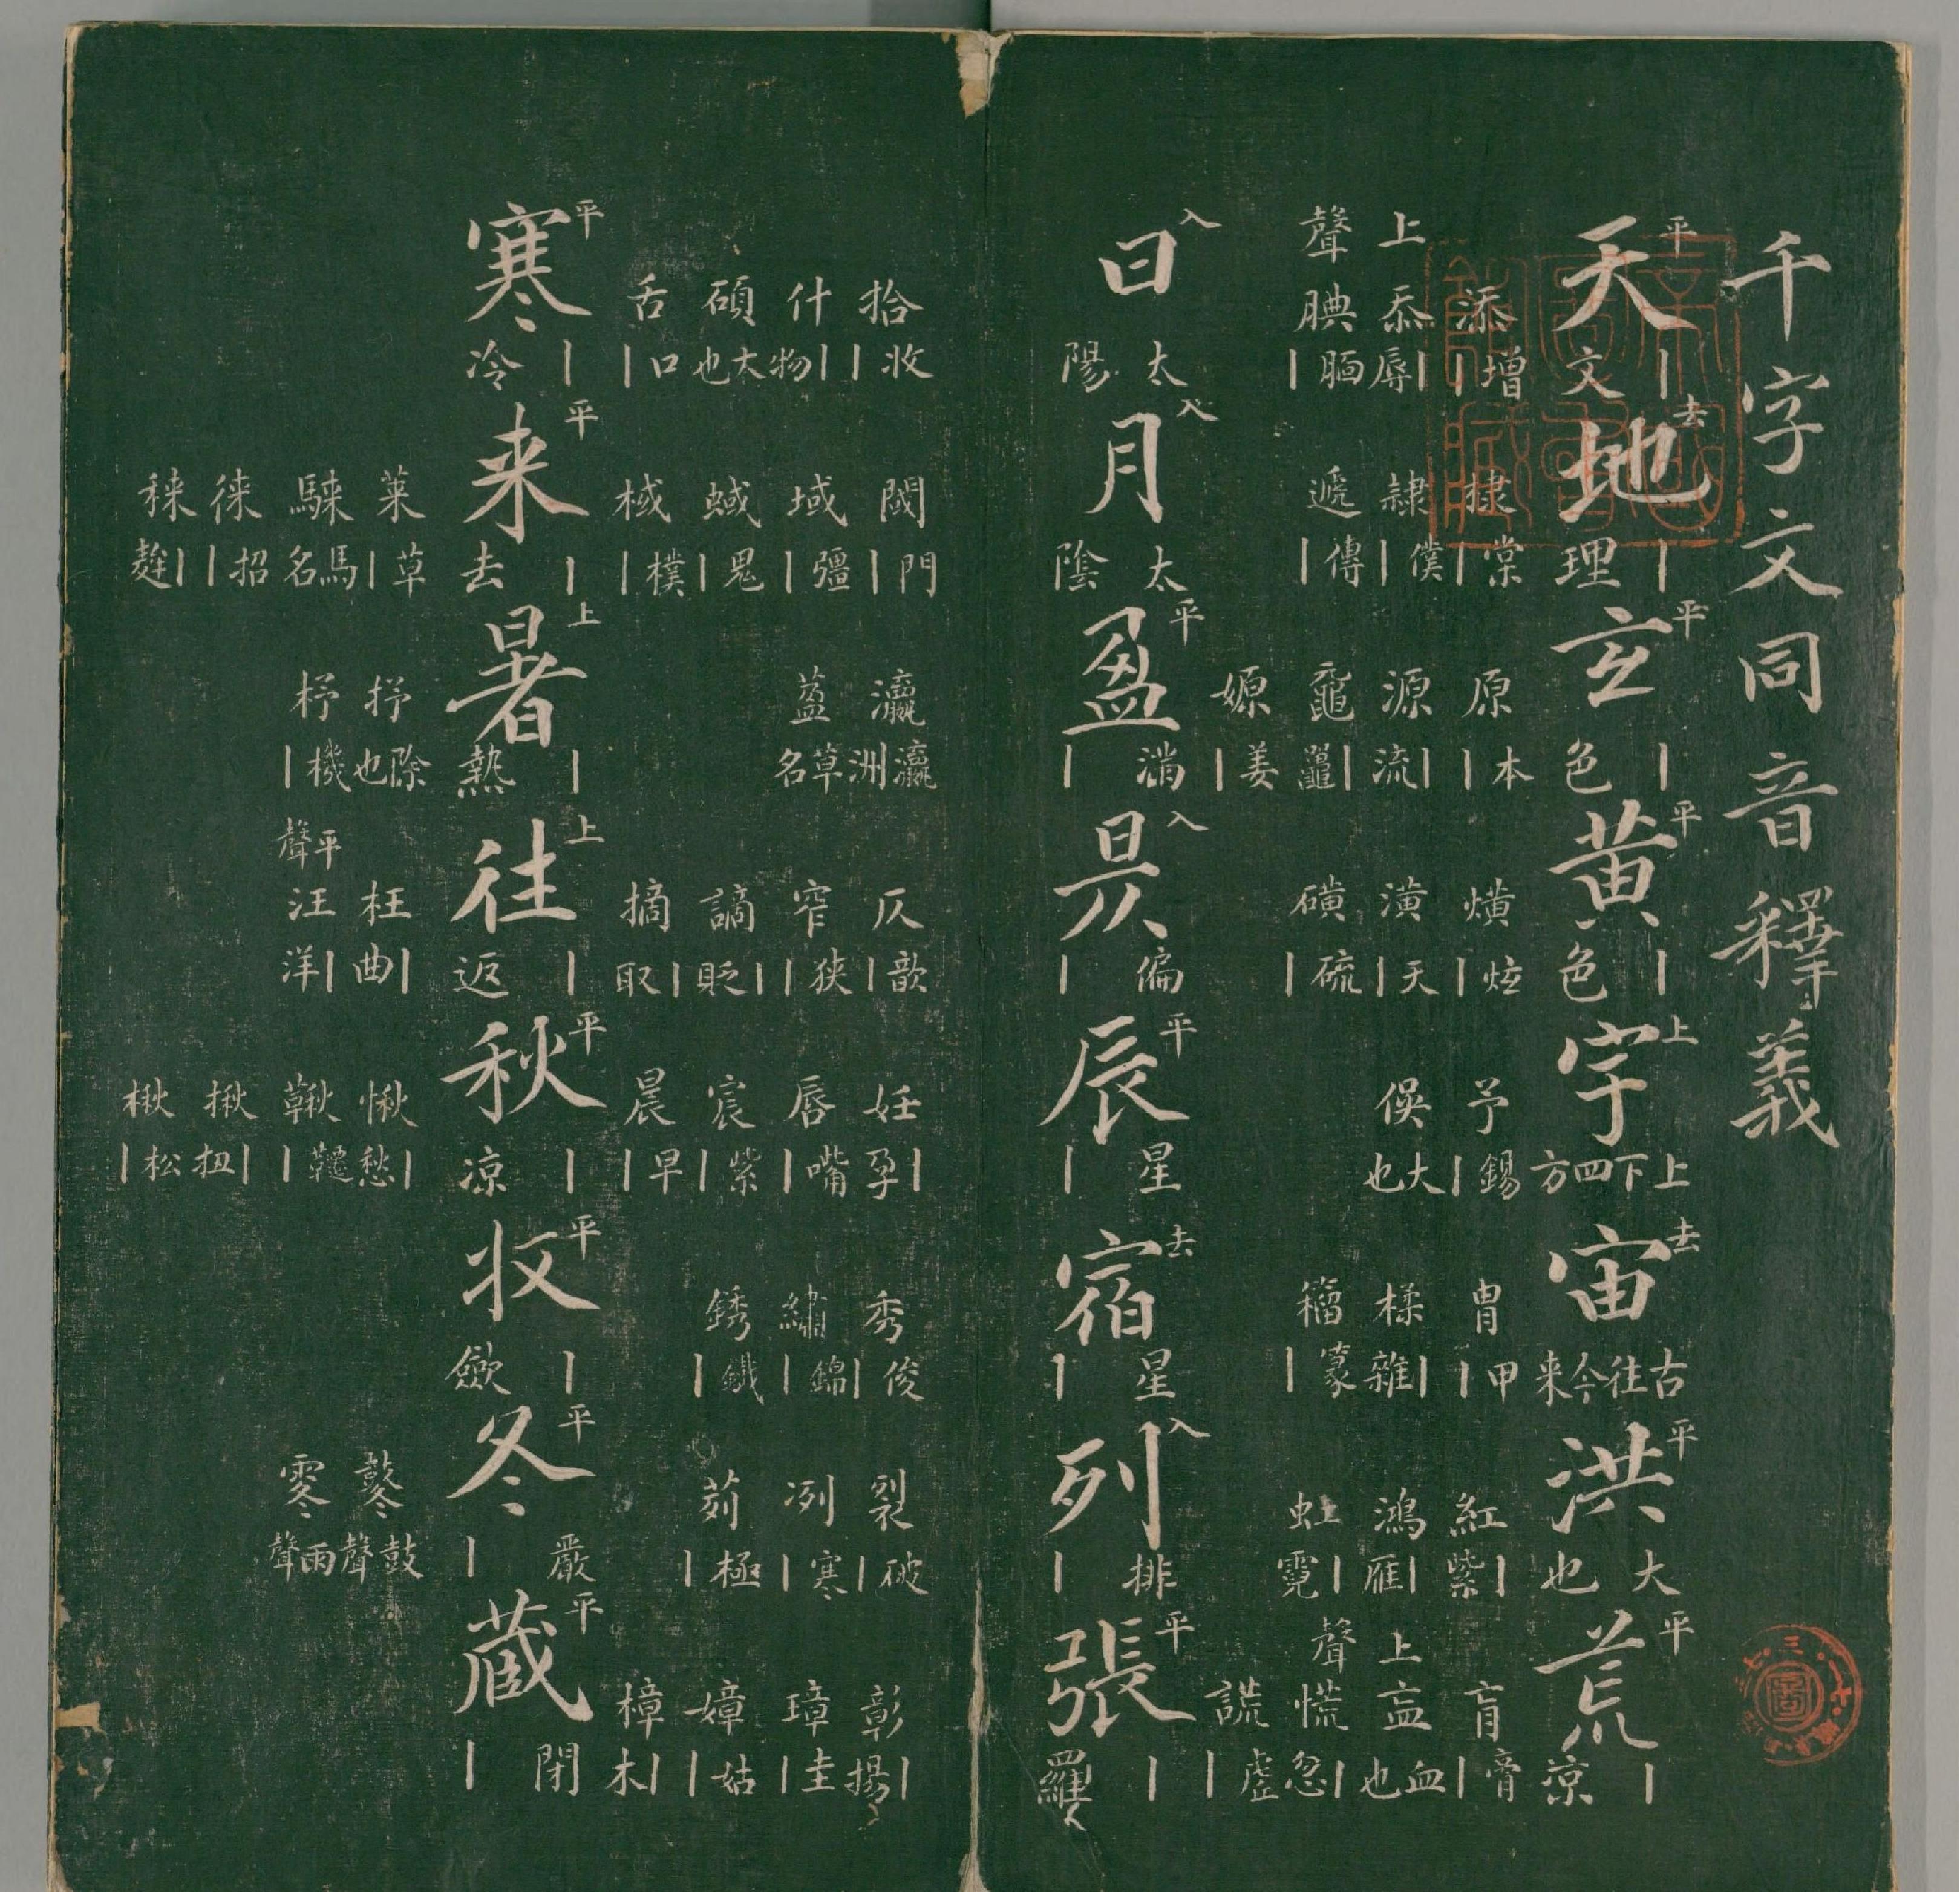 千字文同音釋義
平天｜文去地｜理平玄｜色平黄｜色上宇上下四方去宙古往今来平洪大也平荒｜凉
添增｜棣棠｜原本｜熿炫｜予錫｜冑甲｜紅｜紫肓膏｜
上忝｜辱隷僕｜源｜流潢天｜俁大也楺｜雜鴻｜雁上衁血也
聲腆腼｜遞傳｜黿｜鼉磺硫｜籀篆｜虹｜霓聲慌｜忽
嫄姜｜謊虛｜
入日太陽入月太陰平盈滿｜入昃偏｜平辰星｜去宿星｜入列排｜平張｜羅
拾收｜閾門｜瀛瀛洲仄歆｜妊｜孕秀俊｜裂破｜彰｜揚
什｜物域疆｜草名窄狹｜唇嘴｜繡｜錦冽寒｜璋圭｜
碩大也蜮鬼｜謫｜貶宸紫｜銹鐵｜茢極｜嫜姑｜
舌口｜棫樸｜摘｜取晨早｜樟｜木
平寒｜冷平来｜去上暑｜熱上往｜返平秋｜凉平收｜斂平冬嚴｜平藏閉｜
萊草｜抒除也枉｜曲愀｜愁鼕鼓聲
騋馬名杼機｜平聲汪｜洋鞦韆｜雨聲
徠招｜揪｜扭
｜楸松｜